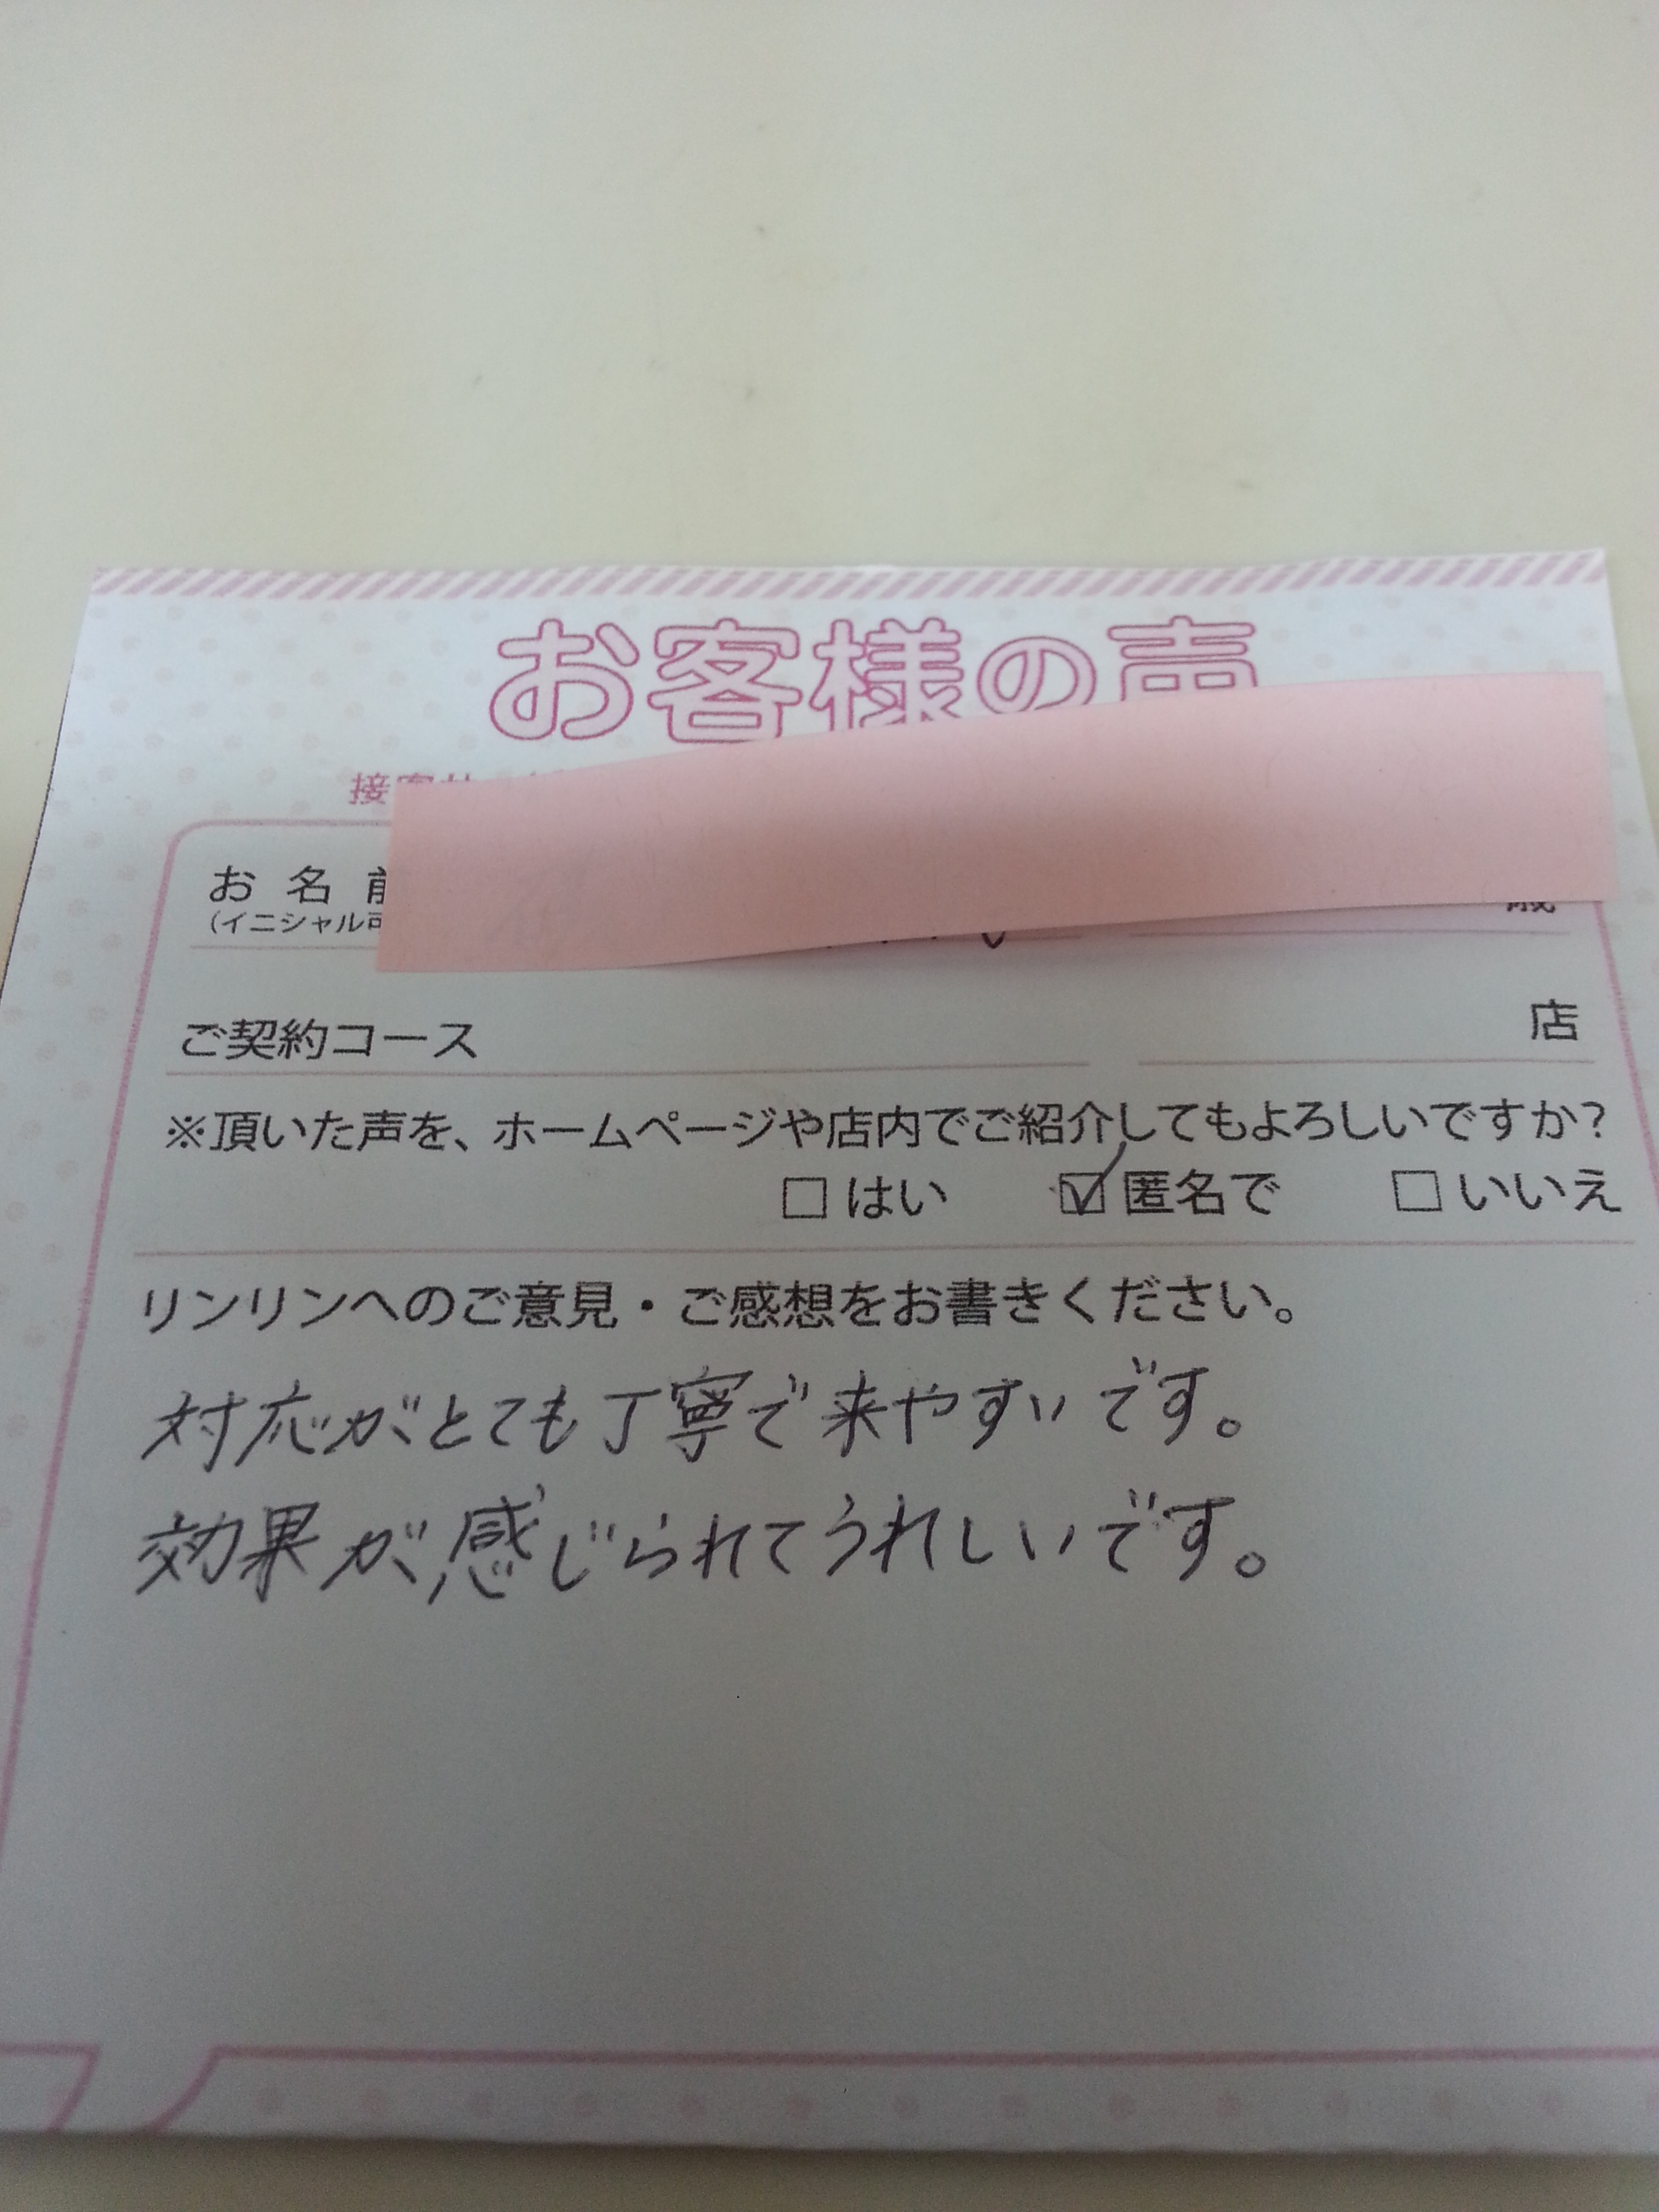 お客様の声
接客
お名前
(イニシャル可
歳
ご契約コース
店
※頂いた声を、ホームページや店内でご紹介してもよろしいですか?
□はい ☑匿名で □いいえ
リンリンへのご意見・ご感想をお書きください。
対応がとても丁寧で来やすいです。
効果が感じられてうれしいです。